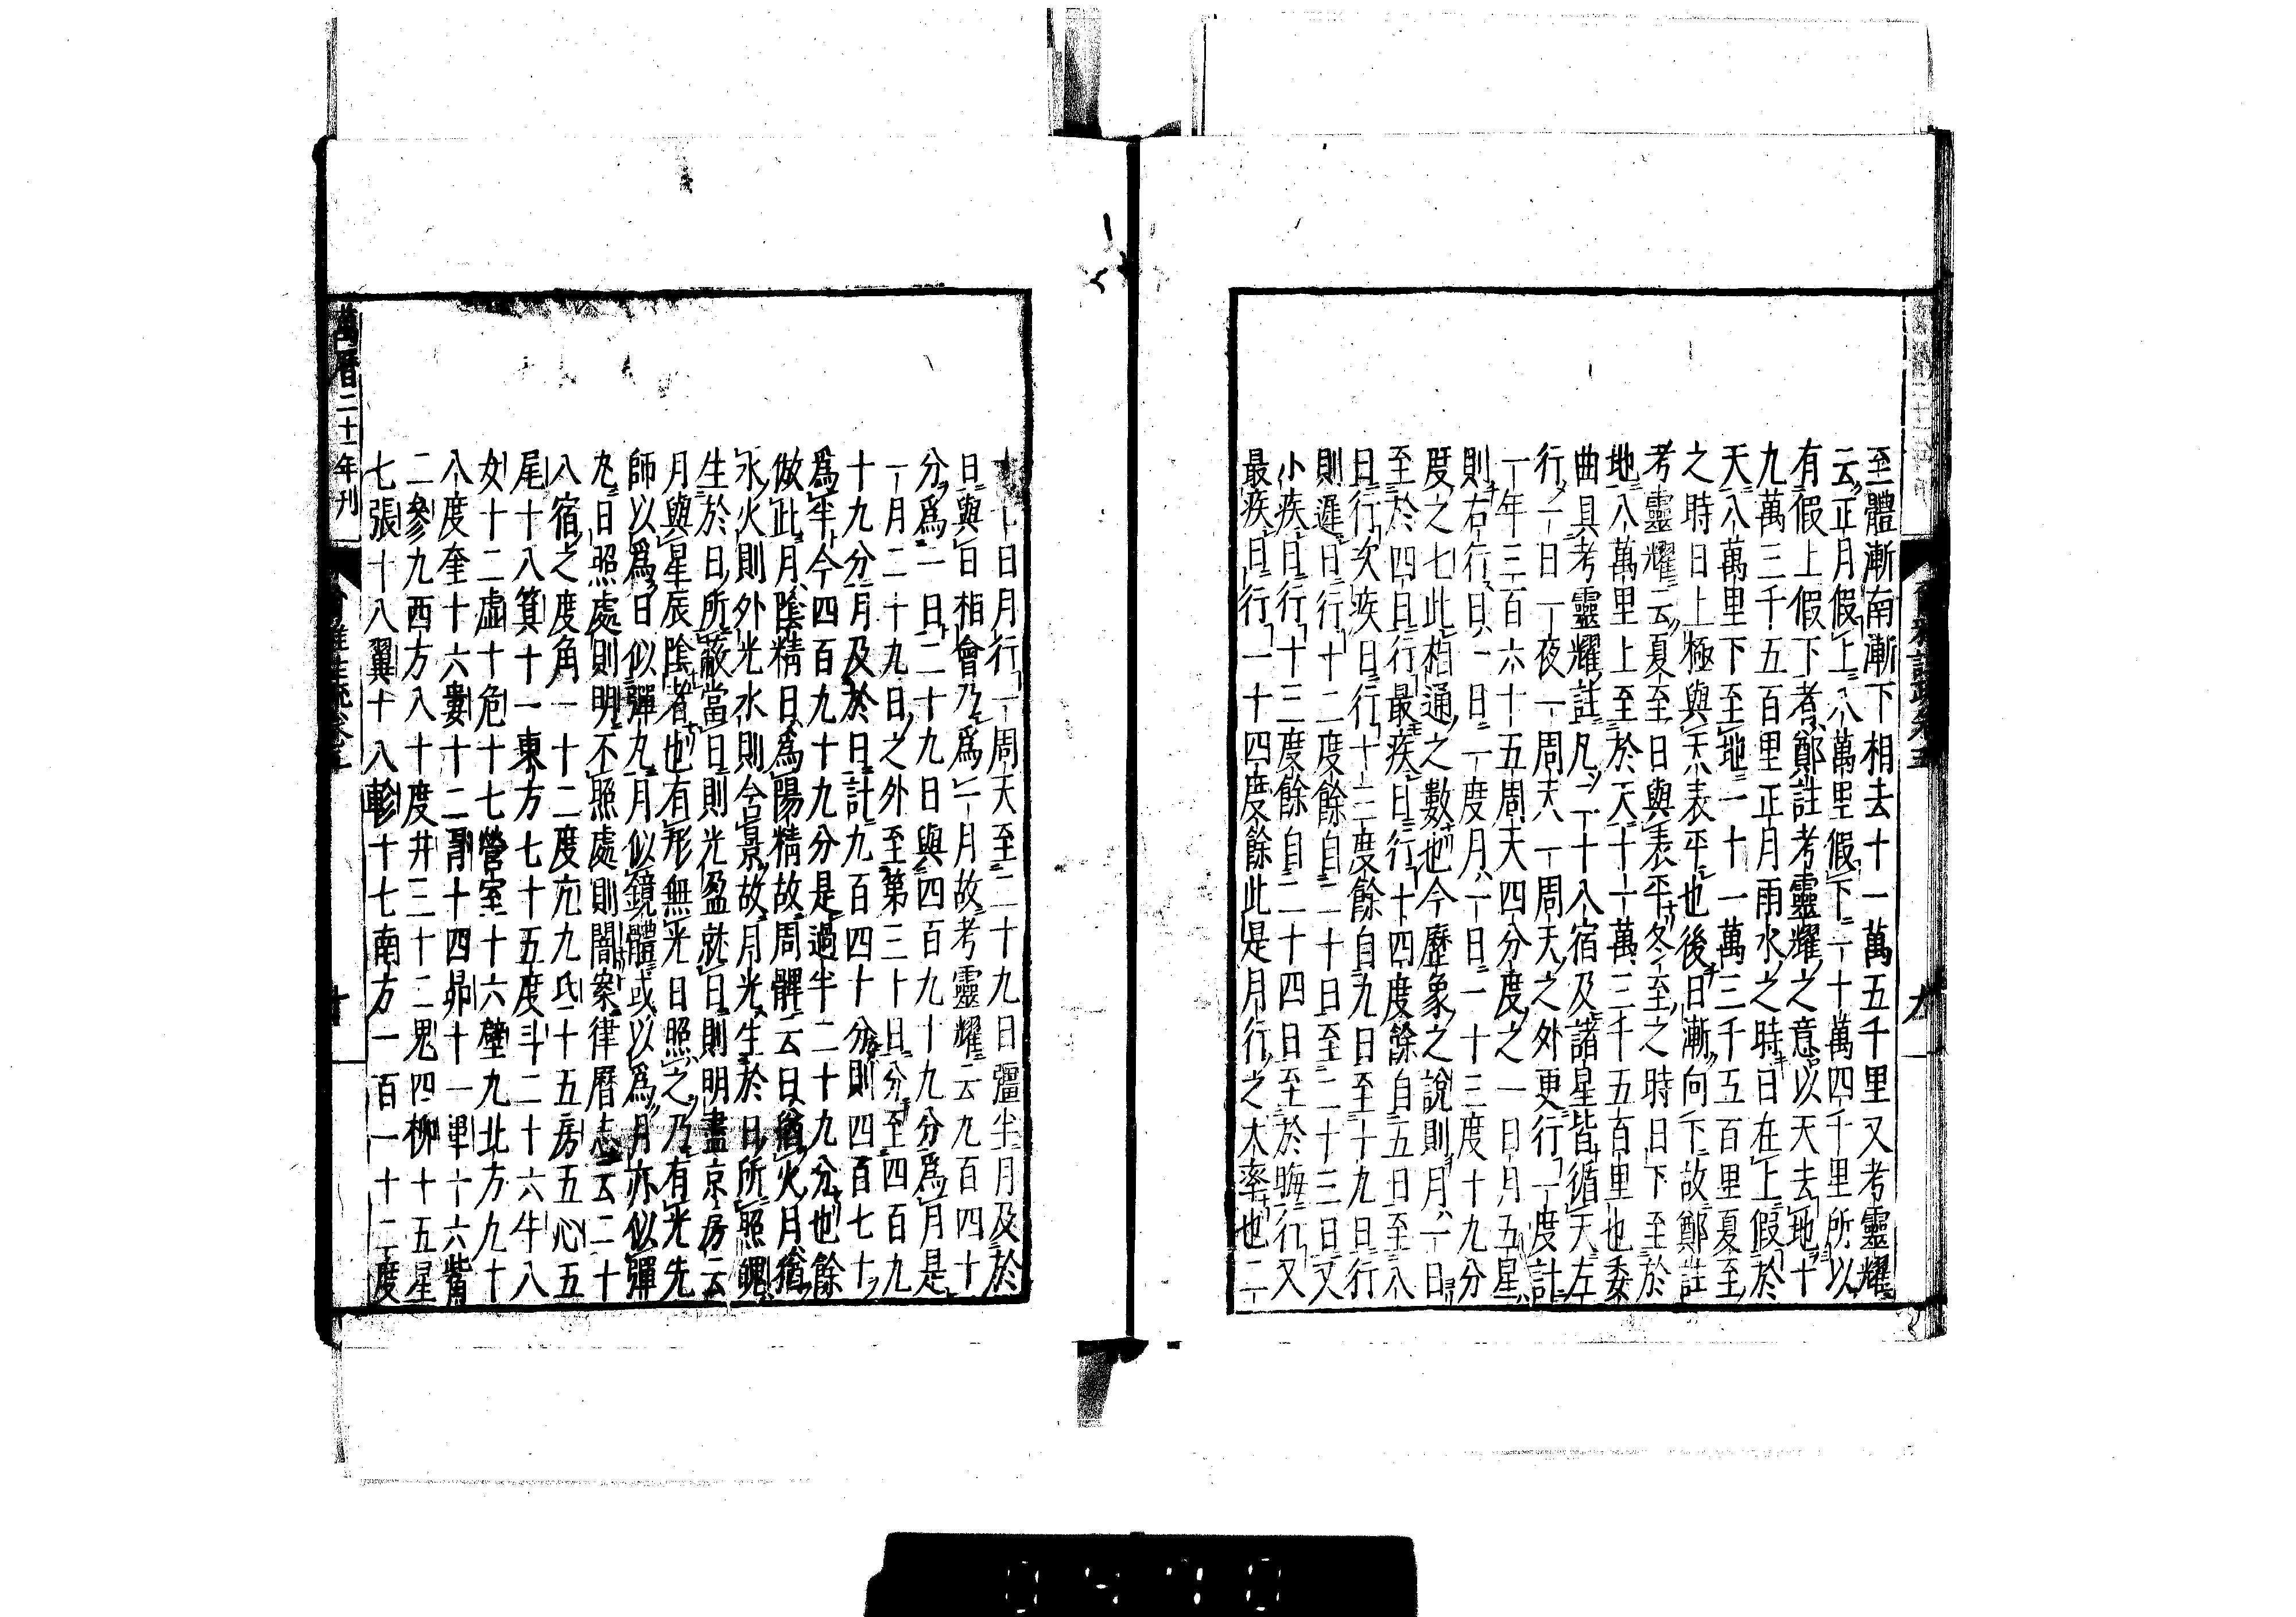 至體漸南漸下相去十一萬五千里又考靈耀
云正月假上八萬里假下一十萬四千里所以
有假上假下者鄭註考靈耀之意以天去地十
九萬三千五百里正月雨水之時日在上假於
天八萬里下至地一十一萬三千五百里夏至
之時日上極與天表平也後日漸向下故鄭註
考靈耀云夏至日與表平冬至之時日下至於
地八萬里上至於天十一萬三千五百里也委
曲具考靈耀註凡二十八宿及諸星皆循天左
行一日一夜一周天一周天之外更行一度計
一年三百六十五周天四分度之一日月五星
則右行日一日一度月一日一十三度十九分
度之七此相通之數也今歷象之說則月一日
至於四日行最疾日行十四度餘自五日至八
日行次疾日行十三度餘自九日至十九日行
則遲日行十二度餘自二十日至二十三日又
小疾日行十三度餘自二十四日至於晦行又
最疾日行一十四度餘此是月行之大率也二
十七日月行一周天至二十九日彊半月及於
日與日相會乃爲一月故考靈耀云九百四十
分爲一日二十九日與四百九十九分爲月是
一月二十九日之外至第三十日分至四百九
十九分月及於日計九百四十分則四百七十
爲半今四百九十九分是過半二十九分也餘
倣此月陰精日爲陽精故周髀云日猶火月猶
水火則外光水則含景故月光生於日所照魄
生於日所蔽當日則光盈就日則明盡京房云
月與星辰陰者也有形無光日照之乃有光先
師以爲日似彈丸月似鏡體或以爲月亦似彈
丸日照處則明不照處則闇案律曆志云二十
八宿之度角一十二度亢九氐十五房五心五
尾十八箕十一東方七十五度斗二十六牛八
女十二虛十危十七營室十六壁九北方九十
八度奎十六婁十二胃十四昴十一畢十六觜
二參九西方八十度井三十二鬼四柳十五星
七張十八翼十八軫十七南方一百一十二度
萬曆二十一年刊
爾雅註疏卷
十